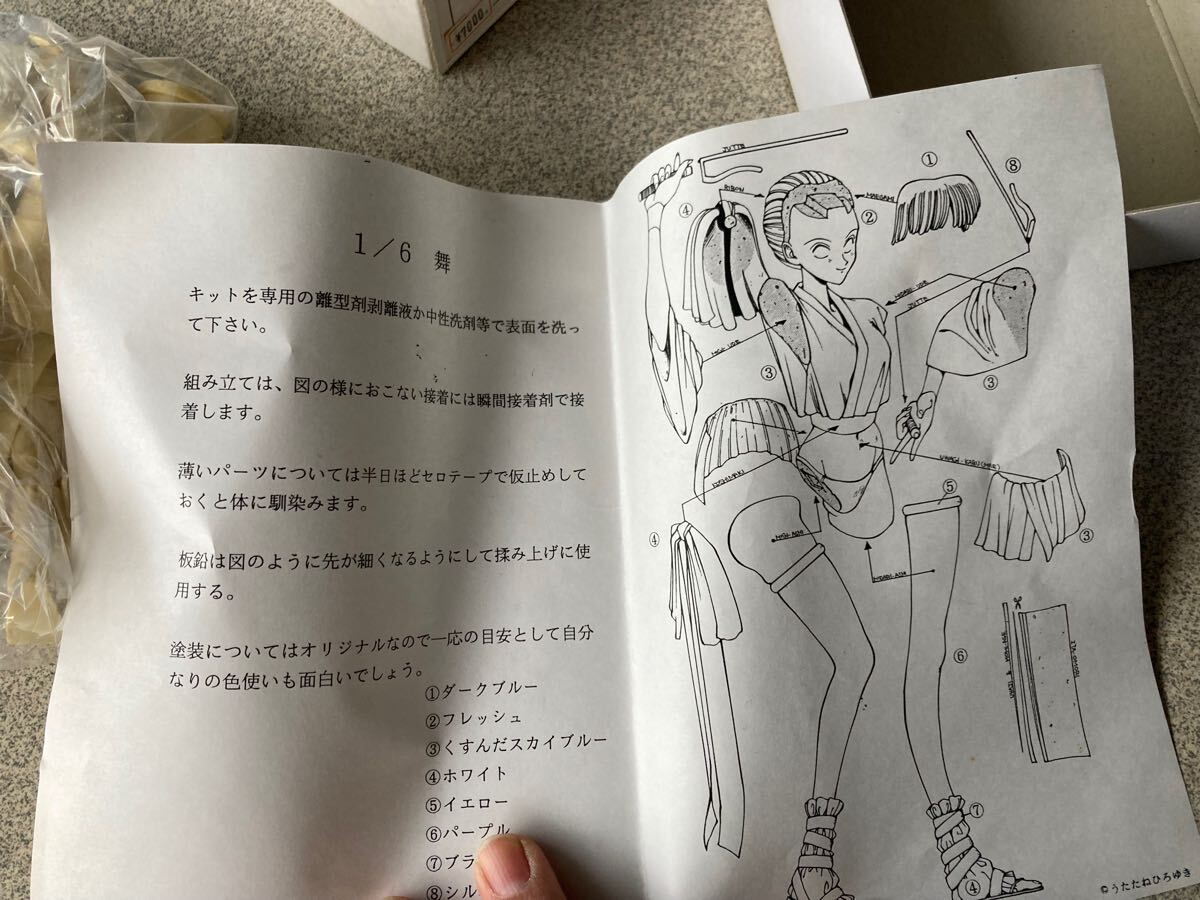 ¥7000.
1/6 舞
キットを専用の離型剤剥離液か中性洗剤等で表面を洗っ
て下さい。
組み立ては、図の様におこない接着には瞬間接着剤で接
着します。
薄いパーツについては半日ほどセロテープで仮止めして
おくと体に馴染みます。
板鉛は図のように先が細くなるようにして揉み上げに使
用する。
塗装についてはオリジナルなので一応の目安として自分
なりの色使いも面白いでしょう。
①ダークブルー
②フレッシュ
③くすんだスカイブルー
④ホワイト
⑤イエロー
⑥パープル
⑦ブラ
⑧シル
JUTTE
RIBON
MAEGAMI
①
②
⑧
④
③
JUTTE
③
④
⑤
③
MIGI-ASHI
HIDARI-ASHI
⑥
⑦
④
©うたたねひろゆき